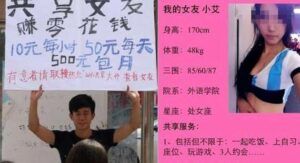 共享女友
赚零花钱
10元每小时 50元每天
500元包月
有意者请联
我的女友 小艾
身高：170cm
体重：48kg
三围：85/60/87
院系：外语学院
星座：处女座
共享服务：
1、包括但不限于：一起吃饭、上自习
座位、玩游戏、3人约会……